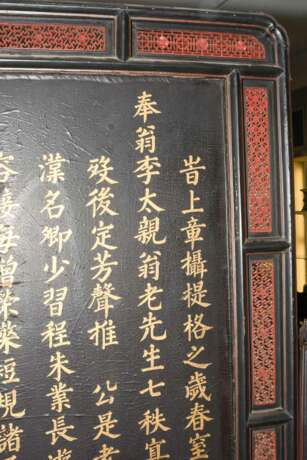 旹上章攝提格之歲春室
奉翁李太親翁老先生七秩
歿後定芳聲推 公是
漢名卿少習程朱業長
接每曾榮藥短視諸